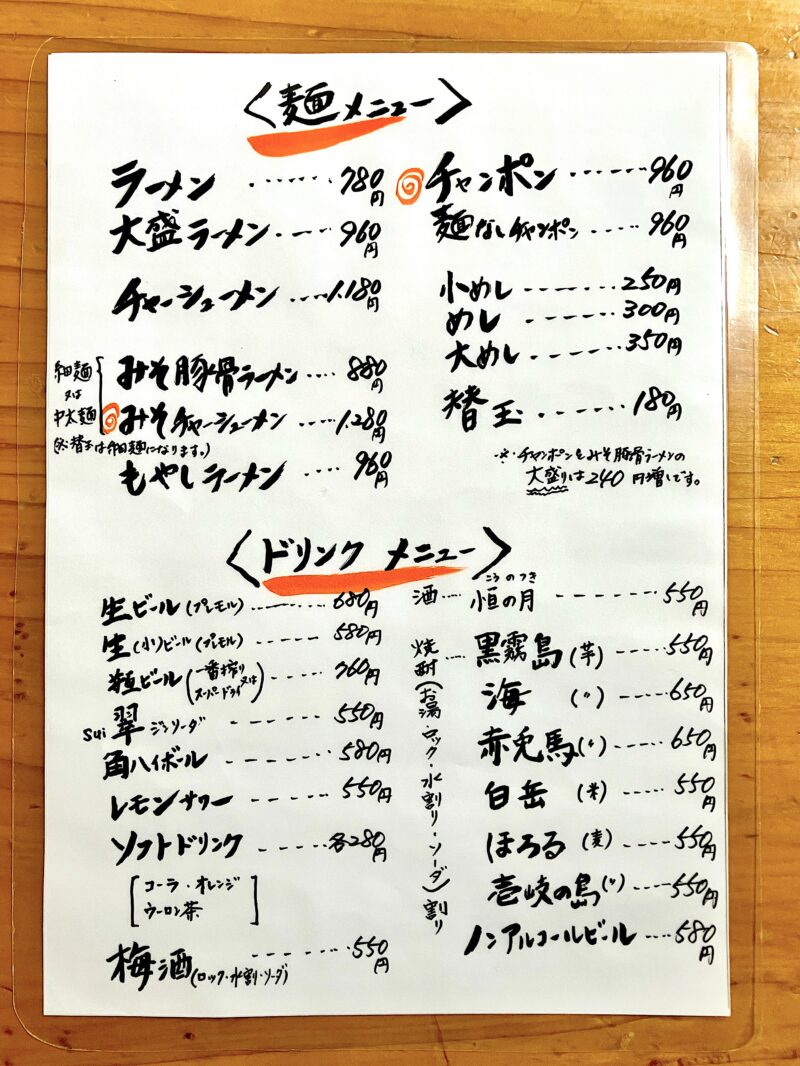 〈麺メニュー〉
ラーメン ・・・・・・ 780円
大盛ラーメン ・・・・ 960円
チャーシューメン ・・・・ 1,180円
細麺又は中太麺
みそ豚骨ラーメン ・・・・ 880円
みそチャーシューメン ・・・・ 1,280円
(※替玉は細麺になります。)
もやしラーメン ・・・・ 960円
チャンポン ・・・・・・ 960円
麺なしチャンポン ・・・・・ 960円
小めし ・・・・・・・ 250円
めし ・・・・・・・ 300円
大めし ・・・・・・ 350円
替玉 ・・・・・・ 180円
※チャンポンもみそ豚骨ラーメンの
大盛りは240円増しです。
〈ドリンクメニュー〉
生ビール(プレモル) ・・・・・・ 680円
生(小)ビール(プレモル) ・・・・ 580円
瓶ビール(一番搾り又はスーパードライ) ・・・・ 760円
sui 翠 ジンソーダ ・・・・・ 550円
角ハイボール ・・・・・ 580円
レモンサワー ・・・・・・ 550円
ソフトドリンク ・・・・・ 各280円
[コーラ・オレンジ
ウーロン茶]
梅酒(ロック・水割・ソーダ) ・・・・・・ 550円
酒 ・・・・ 恒の月 ・・・・・・・ 550円
こうのつき
焼酎(お湯・ロック・水割り・ソーダ)割り
黒霧島(芋) ・・・・・ 550円
海(〃) ・・・・・ 650円
赤兎馬(〃) ・・・・・ 650円
白岳(米) ・・・・・ 550円
ほろる(麦) ・・・・・ 550円
壱岐の島(〃) ・・・・・ 550円
ノンアルコールビール ・・・・ 580円